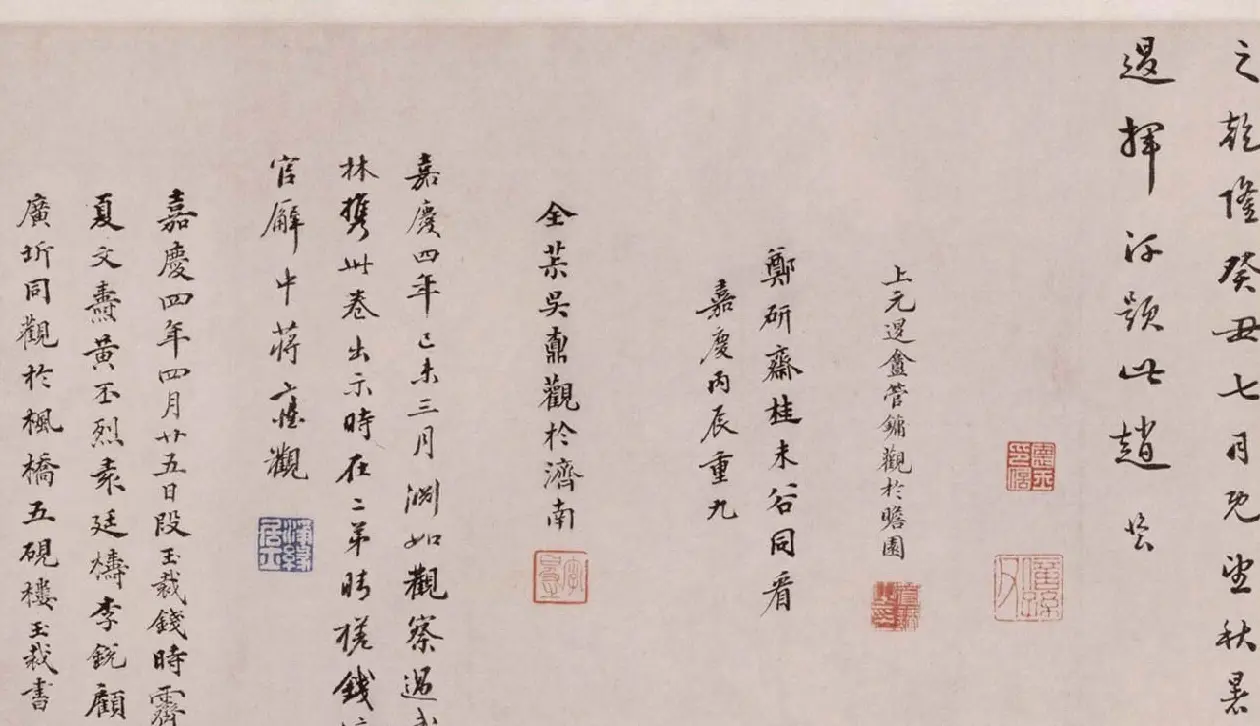 之乾隆癸丑七月既望秋暑
過揮汗題此趙
上元過盦管鏞觀於瞻園
鄭研齋桂未谷同看
嘉慶丙辰重九
全茮吳鼒觀於濟南
嘉慶四年己未三月淵如觀察過
林攜此卷出示時在二弟晴槎錢
官廨中蔣觀
嘉慶四年四月廿五日段玉裁錢時霽
夏文燾黃丕烈袁廷檮李銳顧
廣圻同觀於楓橋五硯樓玉裁書